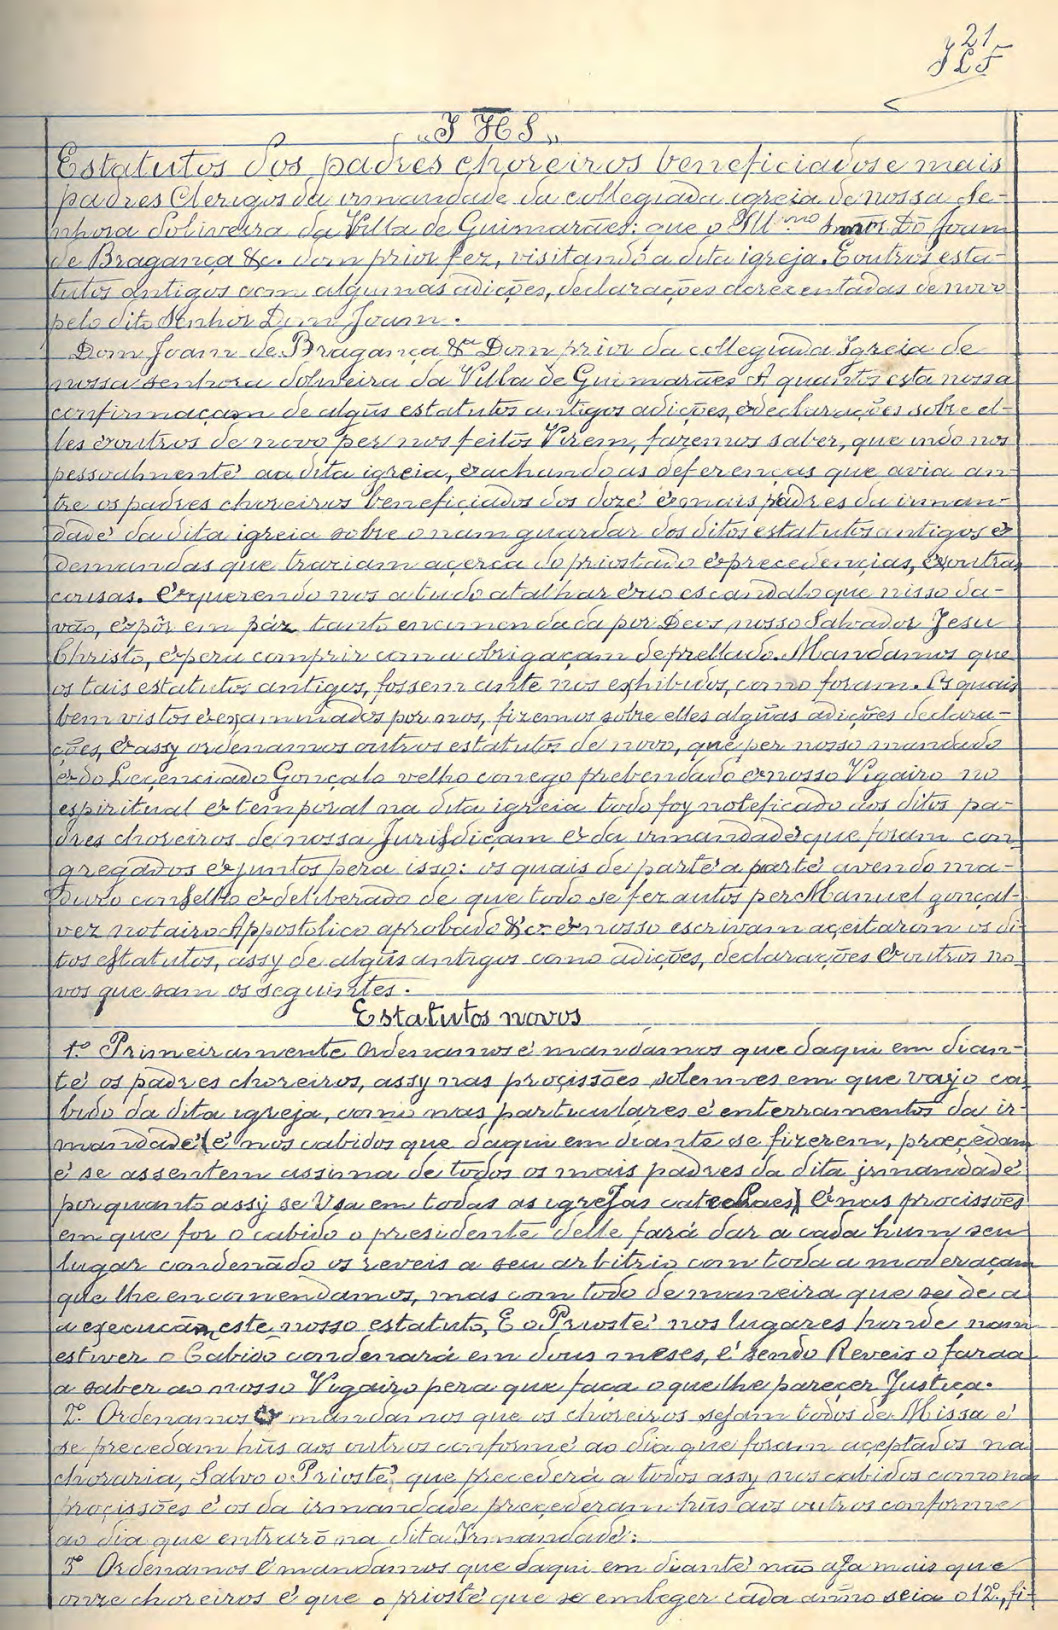 21
J L F
"J HS"
Estatutos dos padres choreiros beneficiados e mais
padres Clerigos da irmandade da collegiada igreia de nossa Se-
nhora doliveira da Villa de Guimarães: que o Ill.mo Dõ Joam
de Bragança &c. dom prior fez, visitando a dita igreja. E outros esta-
tutos antigos com algumas adições, declarações acrecentadas de novo
pelo dito Senhor Dom Joam.
Dom Joam de Bragança &c Dom prior da collegiada Igreia de
nossa senhora doliveira da Villa de Guimarães A quantos esta nossa
confirmaçam de algũs estatutos antigos adições, & declarações sobre el-
les & outros de novo per nos feitos Virem, fazemos saber, que indo nos
pessoalmente aa dita igreia, & achando as deferenças que avia an-
tre os padres choreiros beneficiados dos doze & mais padres da irman-
dade da dita igreia sobre o nam guardar dos ditos estatutos antigos &
demandas que traziam açerca do priostado & precedençias, & outras
cousas. & querendo nos a tudo atalhar & ao escandalo que nisso da-
vão, & pôr em páz tanto encomendada por Deos nosso Salvador Jesu
Christo, & pera comprir com a obrigaçam de prellado. Mandamos que
os tais estatutos antigos, fossem ante nos exhibidos, como foram. Os quais
bem vistos & examinados por nos, fizemos sobre elles algũas adições declara-
ções, & assy ordenamos outros estatutos de novo, que per nosso mandado
& do Leçençiado Gonçalo velho conego prebendado & nosso Vigairo no
espiritual & temporal na dita igreia todo foy noteficado aos ditos pa-
dres choreiros de nossa Jurisdiçam & da irmandade que foram con-
gregados & juntos pera isso: os quais de parte a parte avendo ma-
duro conselho & deliberado de que todo se fez autos per Manuel gonçal-
vez notairo Appostolico aprobado &c. & nosso escrivam açeitarom os di-
tos estatutos, assy de algũs antigos como adições, declarações & outros no-
vos que sam os seguintes.
Estatutos novos
1.º Primeiramente ordenamos é mandamos que daqui em dian-
té os padres choreiros, assy nas proçissões solemnes em que vay o ca-
bido da dita igreja, como nas particuláres é enterramentos da ir-
mandade (é nos cabidos que daqui em diante se fizerem, preçedam
é se assentem assima de todos os mais padres da dita irmandade
porquanto assy se Usa em todas as igrejas catedraes) É nas procissões
em que for o cabido o presidente delle fará dar a cada hum seu
lugar condenãdo os reveis a seu arbitrio com toda a moderaçam
que lhe encomendamos, mas com todo de maneira que se dé a
a execução este nosso estatuto, E o Prioste nos lugares honde nam
estiver o Cabido condenará em dous meses, é sendo Reveis o faraa
a saber ao nosso Vigairo pera que faça o que lhe pareçer Justiça.
2.º Ordenamos & mandamos que os choreiros sejam todos de Missa é
se precedam hũs aos outros conforme ao dia que foram açeptados na
choraria, Salvo o Prioste, que precederá a todos assy nos cabidos como nas
proçissões é os da irmandade preçederam hũs aos outros conforme
ao dia que entrarõ na dita Irmandade:
3º Ordenamos é mandamos que daqui em diante não aja mais que
onze choreiros é que o prioste que se emleger cada anno seia o 12º, fi-